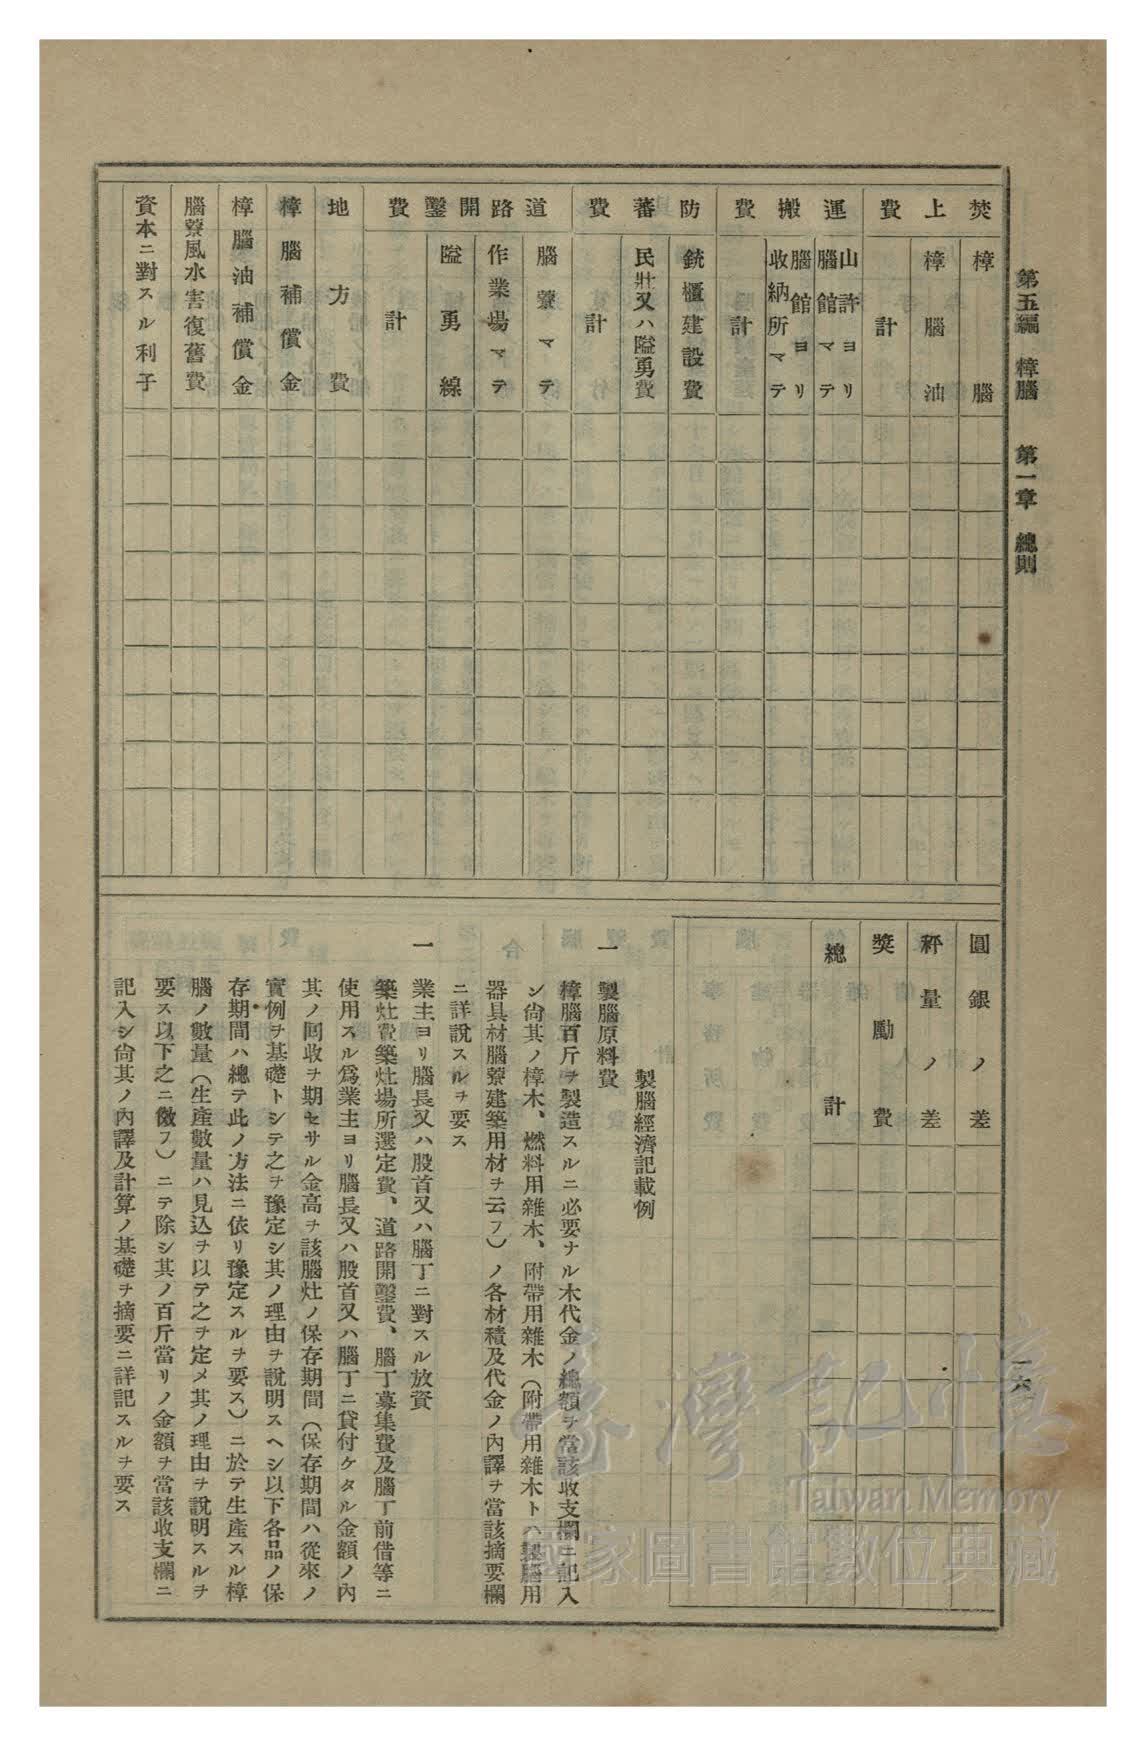 第五編 樟腦 第一章 總則
一六
焚上費
樟腦
樟腦油
計
運搬費
山許ヨリ
腦館マテ
腦館ヨリ
收納所マテ
計
防蕃費
銃櫃建設費
民壯又ハ隘勇費
計
道路開鑿費
腦藔マテ
作業場マテ
隘勇線
計
地方費
樟腦補償金
樟腦油補償金
腦藔風水害復舊費
資本ニ對スル利子
圓銀ノ差
秤量ノ差
奬勵費
總計
製腦經濟記載例
一 製腦原料費
樟腦百斤ヲ製造スルニ必要ナル木代金ノ總額ヲ當該收支欄ニ記入
シ尙其ノ樟木、燃料用雜木、附帶用雜木（附帶用雜木トハ製腦用
器具材腦藔建築用材ヲ云フ）ノ各材積及代金ノ內譯ヲ當該摘要欄
ニ詳說スルヲ要ス
一 業主ヨリ腦長又ハ股首又ハ腦丁ニ對スル放資
築灶費築灶場所選定費、道路開鑿費、腦丁募集費及腦丁前借等ニ
使用スル爲業主ヨリ腦長又ハ股首又ハ腦丁ニ貸付ケタル金額ノ內
其ノ回收ヲ期セサル金高ヲ該腦灶ノ保存期間（保存期間ハ從來ノ
實例ヲ基礎トシテ之ヲ豫定シ其ノ理由ヲ說明スヘシ以下各品ノ保
存期間ハ總テ此ノ方法ニ依リ豫定スルヲ要ス）ニ於テ生產スル樟
腦ノ數量（生產數量ハ見込ヲ以テ之ヲ定メ其ノ理由ヲ說明スルヲ
要ス以下之ニ倣フ）ニテ除シ其ノ百斤當リノ金額ヲ當該收支欄ニ
記入シ尙其ノ內譯及計算ノ基礎ヲ摘要ニ詳記スルヲ要ス
臺灣記憶
Taiwan Memory
國家圖書館數位典藏